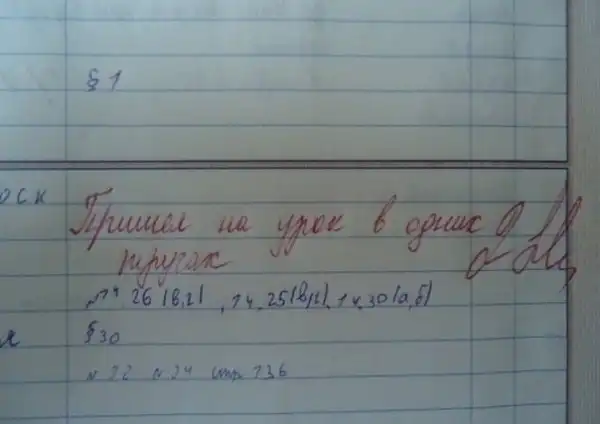 § 1
оск
Пришел на урок в одних
труѓах
№14 26 (в,г), 14.25(в,г), 14.30(а,б)
я
§30
№ 22 № 24 стр. 136